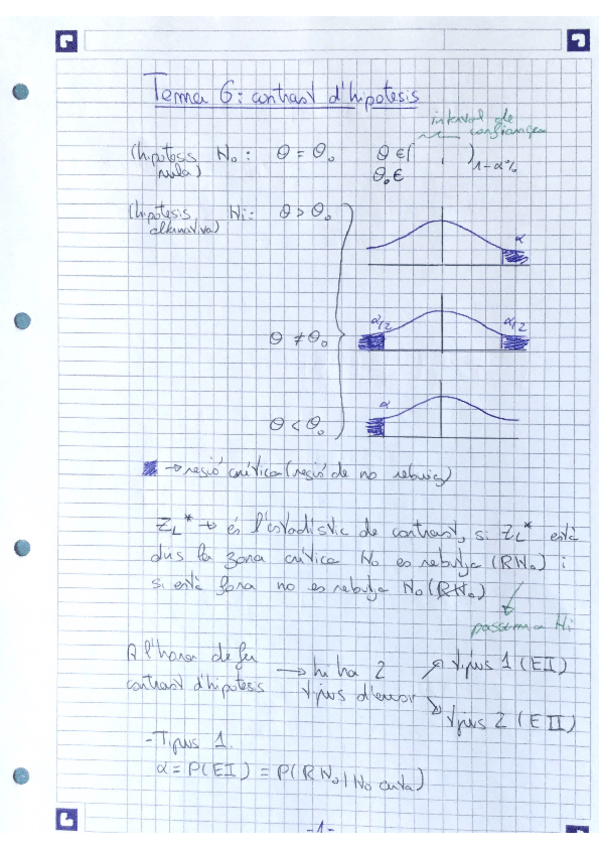 Tema 6: contrast d'hipotesis
interval de
confiança
(hipotesis H₀: θ = θ₀ θ ∈ ( , )₁₋α%
nula) θ₀ ∈
(hipotesis H₁: θ > θ₀
alternativa)
α
θ ≠ θ₀
α/2 α/2
α
θ < θ₀
→ regió crítica (regió de no rebuig)
Z_L* → és l'estadístic de contrast, si Z_L* està
dins la zona crítica H₀ es rebutja (RH₀) i
si està fora no es rebutja H₀ (RH₀)
passem a Hi
A l'hora de fer
contrast d'hipotesis → hi ha 2 tipus d'error
tipus 1 (EI)
tipus 2 (EII)
- Tipus 1.
α = P(EI) = P(RH₀ | H₀ certa)
-1-